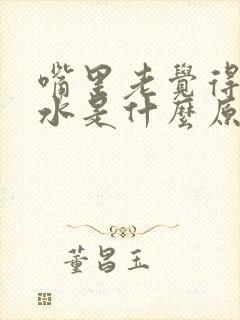 嘴里老覺得
水是什麼原
董昌玉